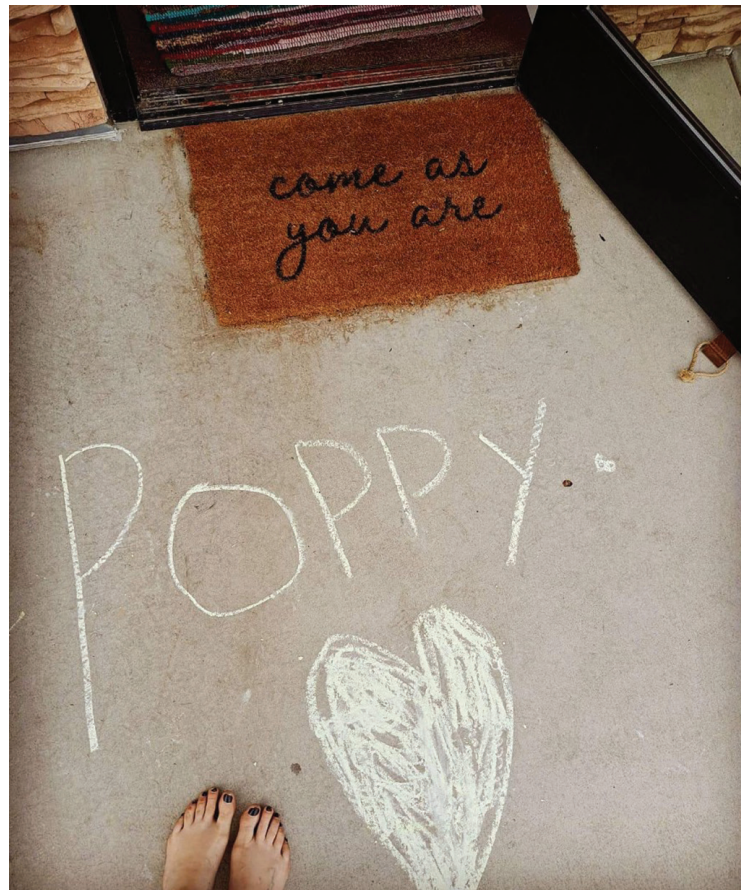 come as
you are
POPPY.